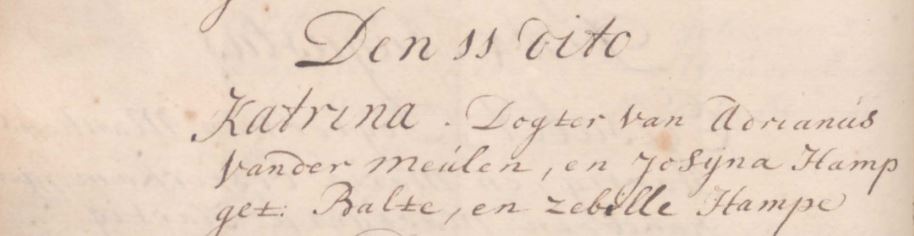 Den 11 dito
Katrina. Dogter van Adrianús
vander Meúlen, en Josÿna Hamp
get: Balte, en zebille Hampe